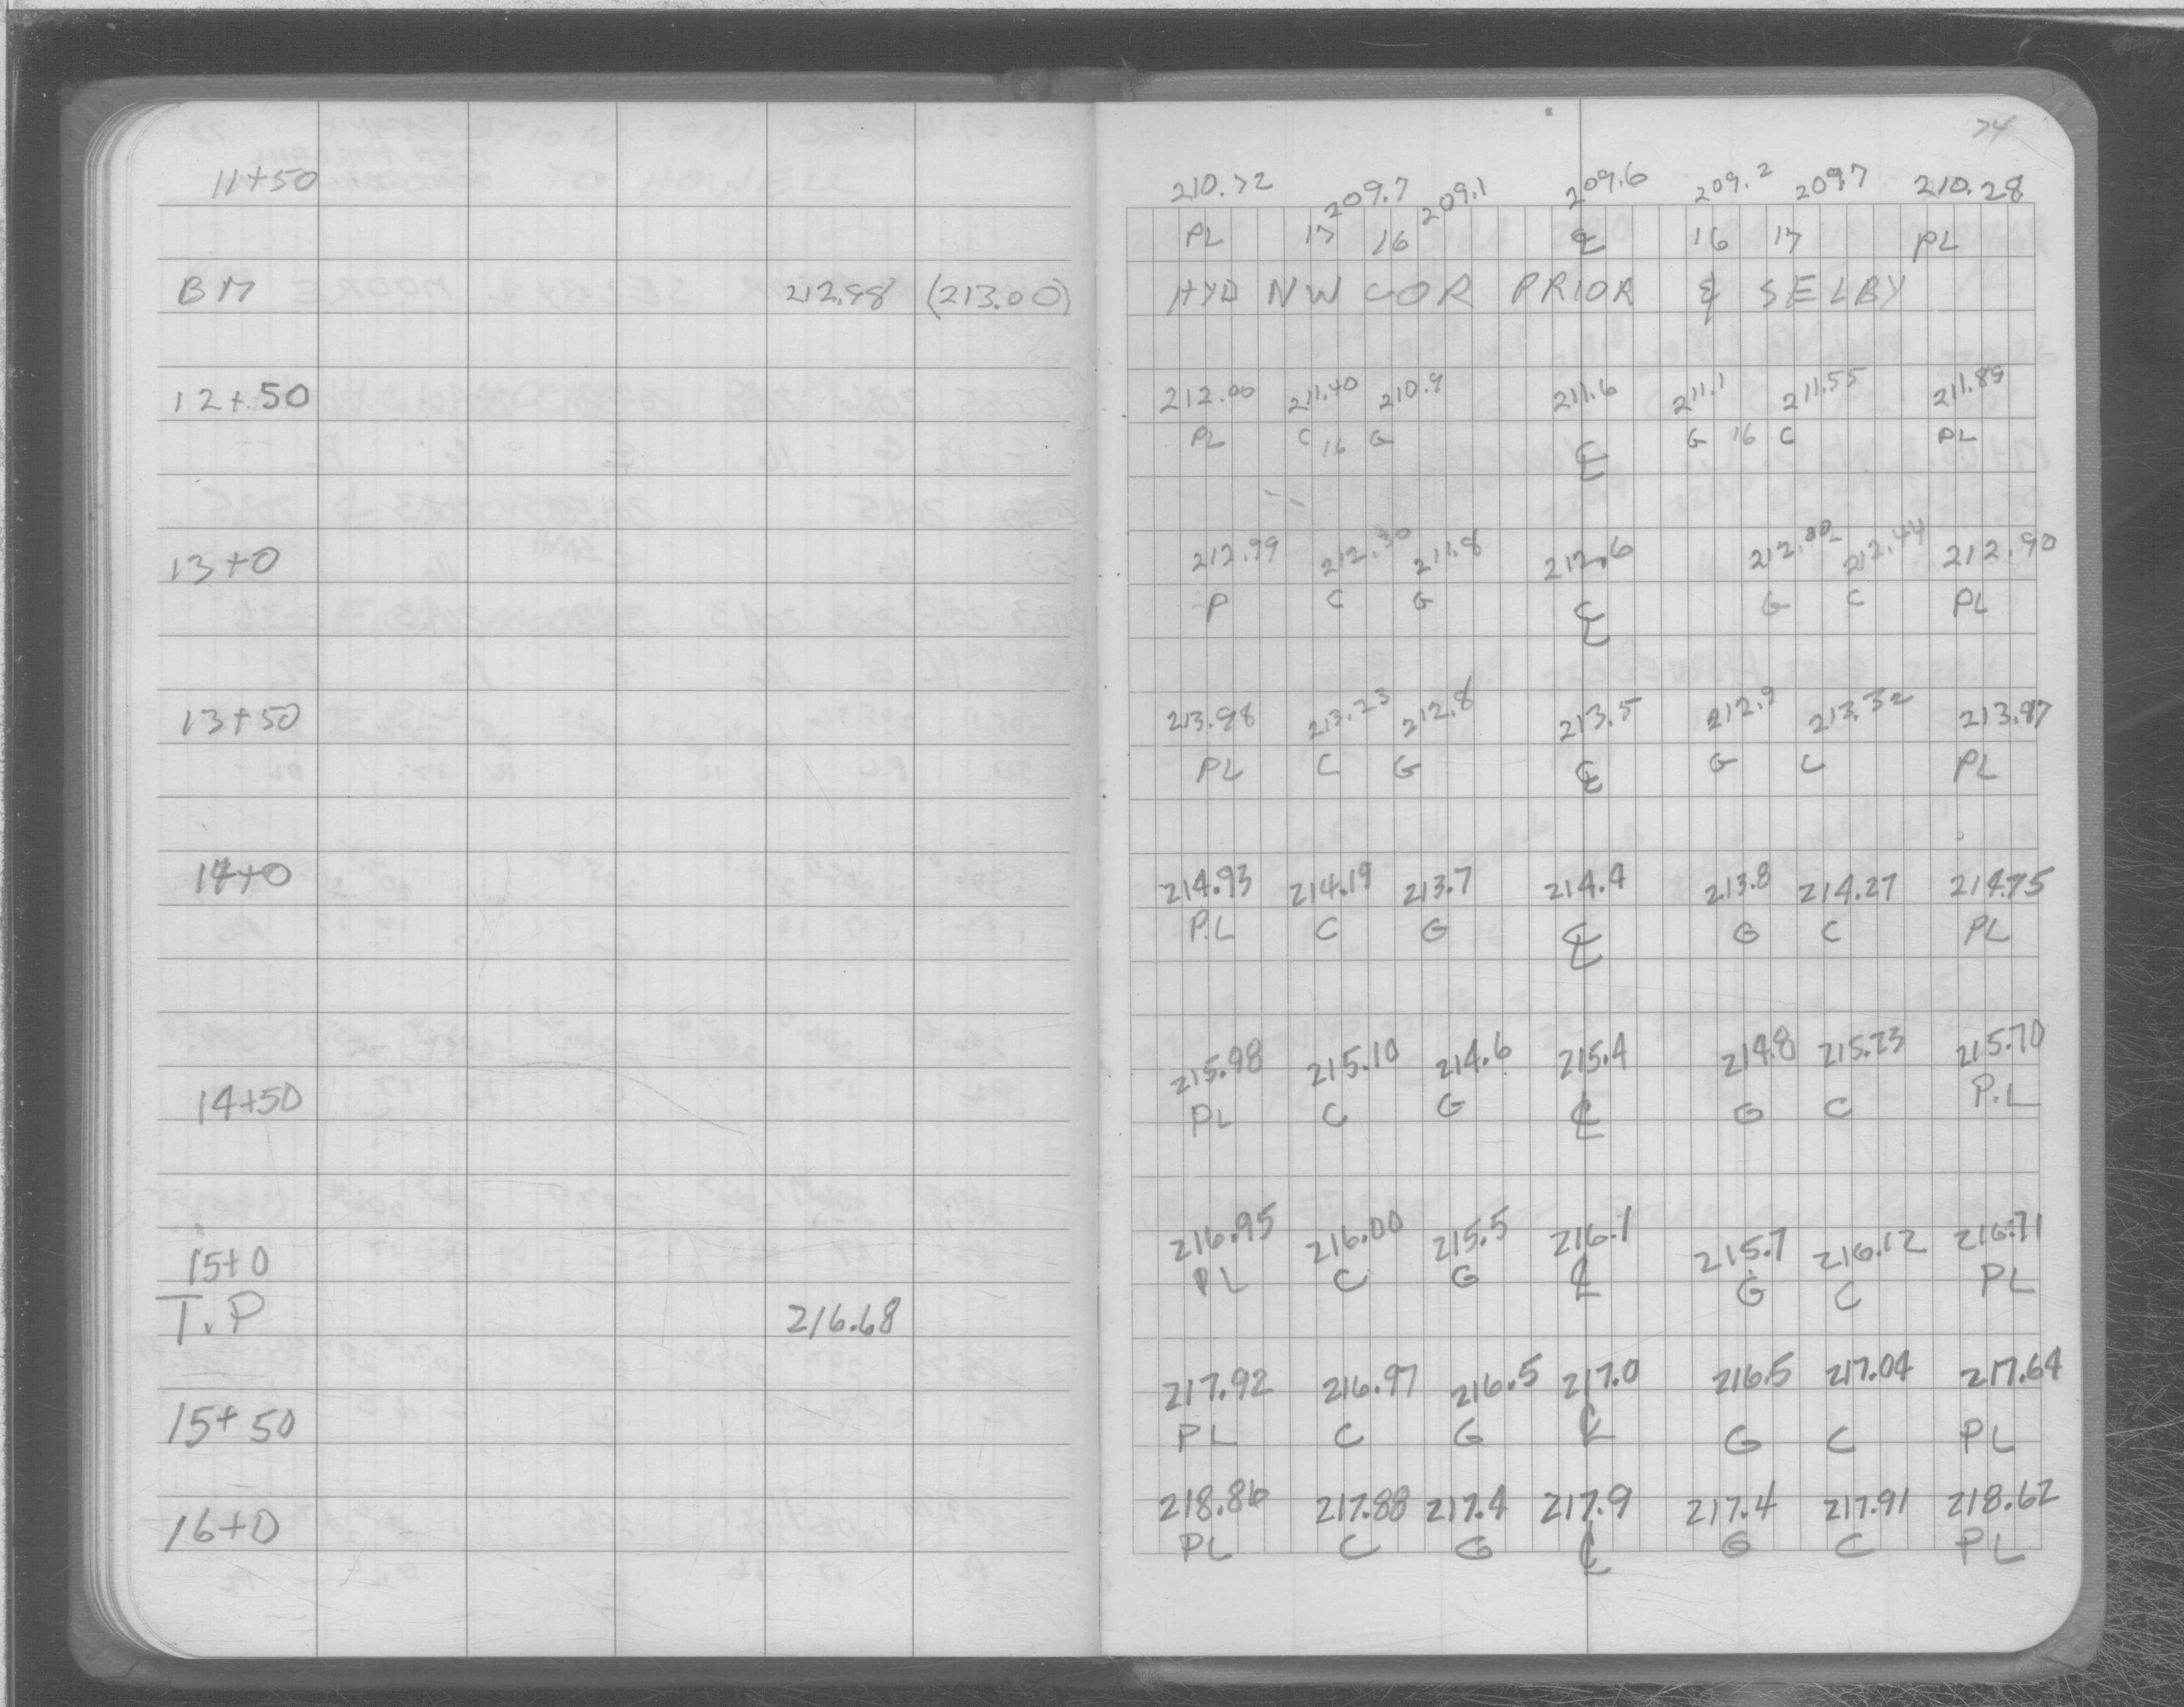 74
11+50 210.72 209.7 209.1 209.6 209.2 209.7 210.28
PL 17 16 ℄ 16 17 PL
BM 212.98 (213.00) HYD NW COR PRIOR & SELBY
12+50 212.00 211.40 210.9 211.6 211.1 211.55 211.89
PL C 16 G ℄ G 16 C PL
13+0 212.99 212.30 211.8 212.6 212.00 212.44 212.90
P C G ℄ G C PL
13+50 213.98 213.23 212.8 213.5 212.9 213.32 213.87
PL C G ℄ G C PL
14+0 214.93 214.19 213.7 214.4 213.8 214.27 214.75
P.L C G ℄ G C PL
215.98 215.10 214.6 215.4 214.8 215.23 215.70
14+50 PL C G ℄ G C P.L
216.95 216.00 215.5 216.1 215.7 216.12 216.71
15+0 PL C G ℄ G C PL
T.P 216.68
217.92 216.97 216.5 217.0 216.5 217.04 217.64
15+50 PL C G ℄ G C PL
218.86 217.88 217.4 217.9 217.4 217.91 218.62
16+0 PL C G ℄ G C PL